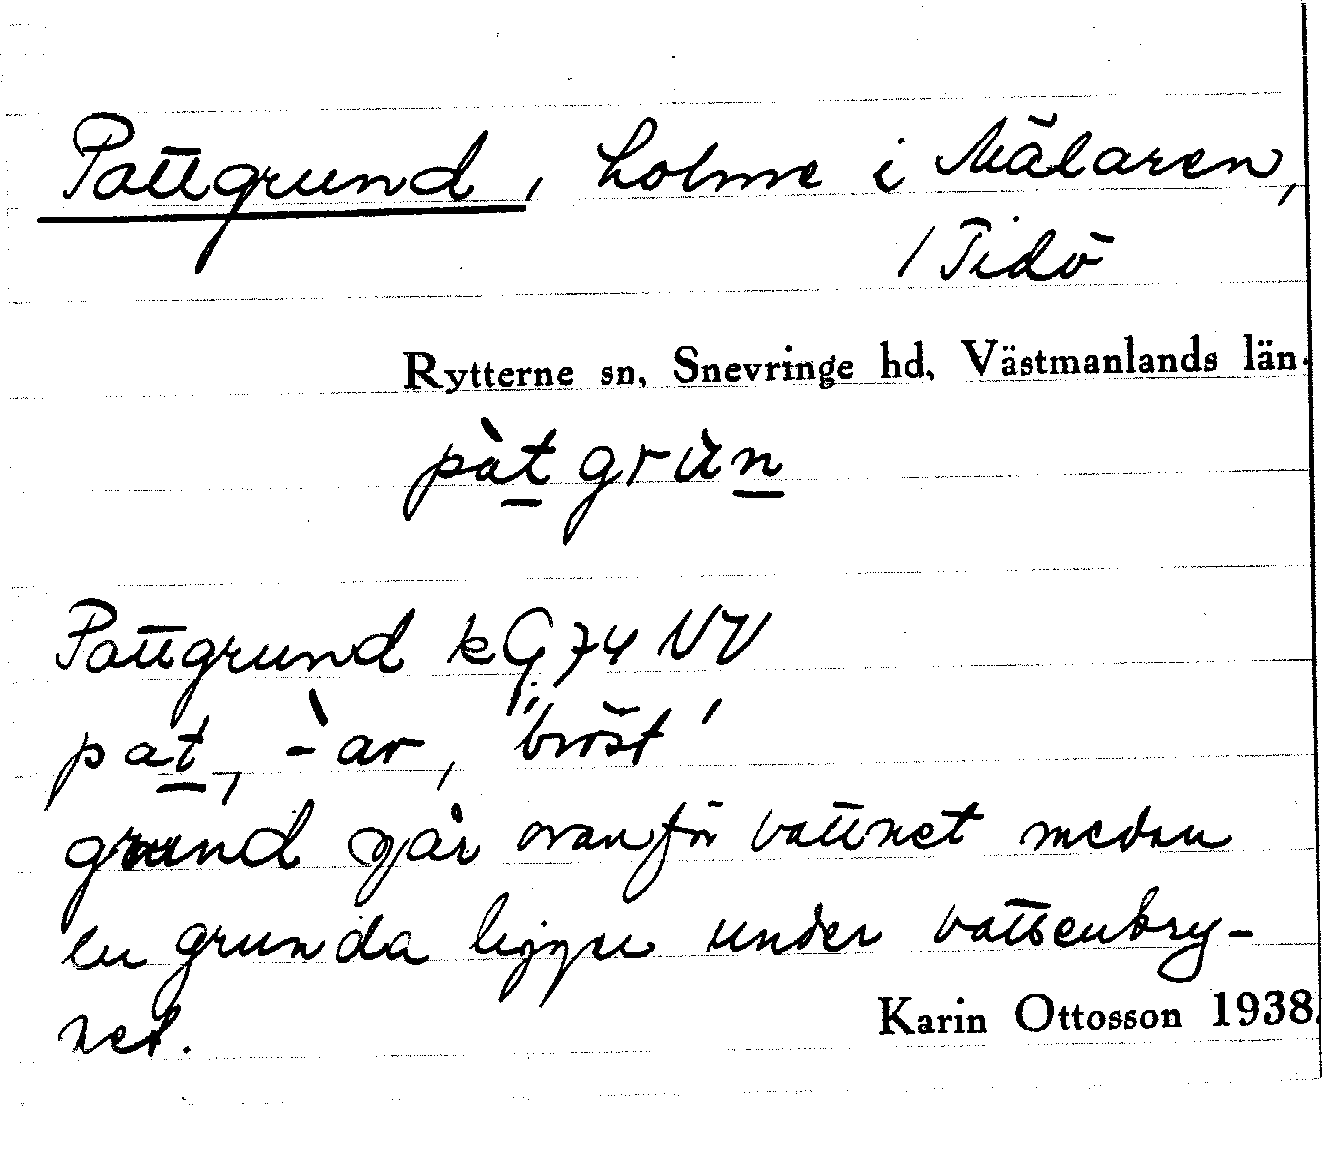 Pattgrund, holme i Mälaren,
/ Tidö
Rytterne sn, Snevringe hd, Västmanlands län.
pàt grùn
Pattgrund kG74 NV
pat, -àr, "bröst'
grund går ovanför vattnet medan
en grunda ligger under vattenbry-
net.
Karin Ottosson 1938.